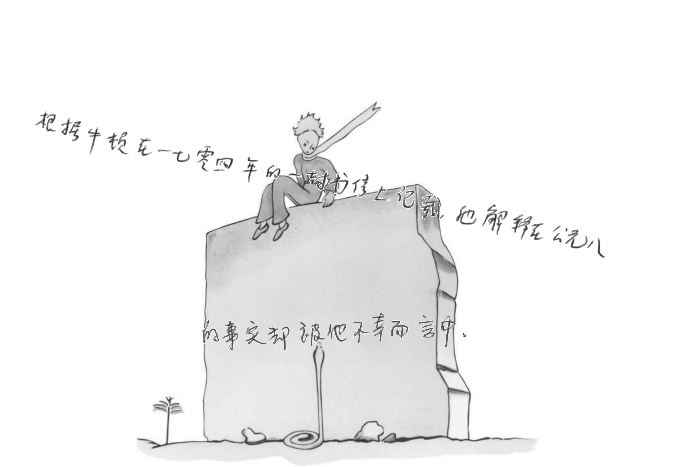 根据牛顿在一七零四年的一封书信上记载,他解释在公元八
的事实却被他不幸而言中。